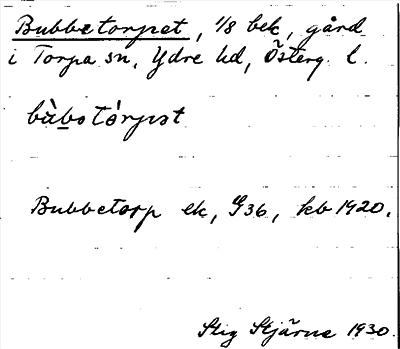 Bubbetorpet, 1/8 bek, gård
i Torpa sn, Ydre hd, Österg. l.
bùbotórpət
Bubbetorp ek, G36, kb 1920.
Stig Stjärne 1930.